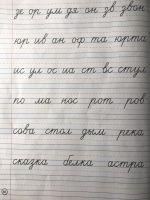 зе ор ум дя он зв звон
юр ив ан оф та юрта
ис ул ос иа ст вс стул
по ма нос рот ров
сова стол дым река
сказка белка астра